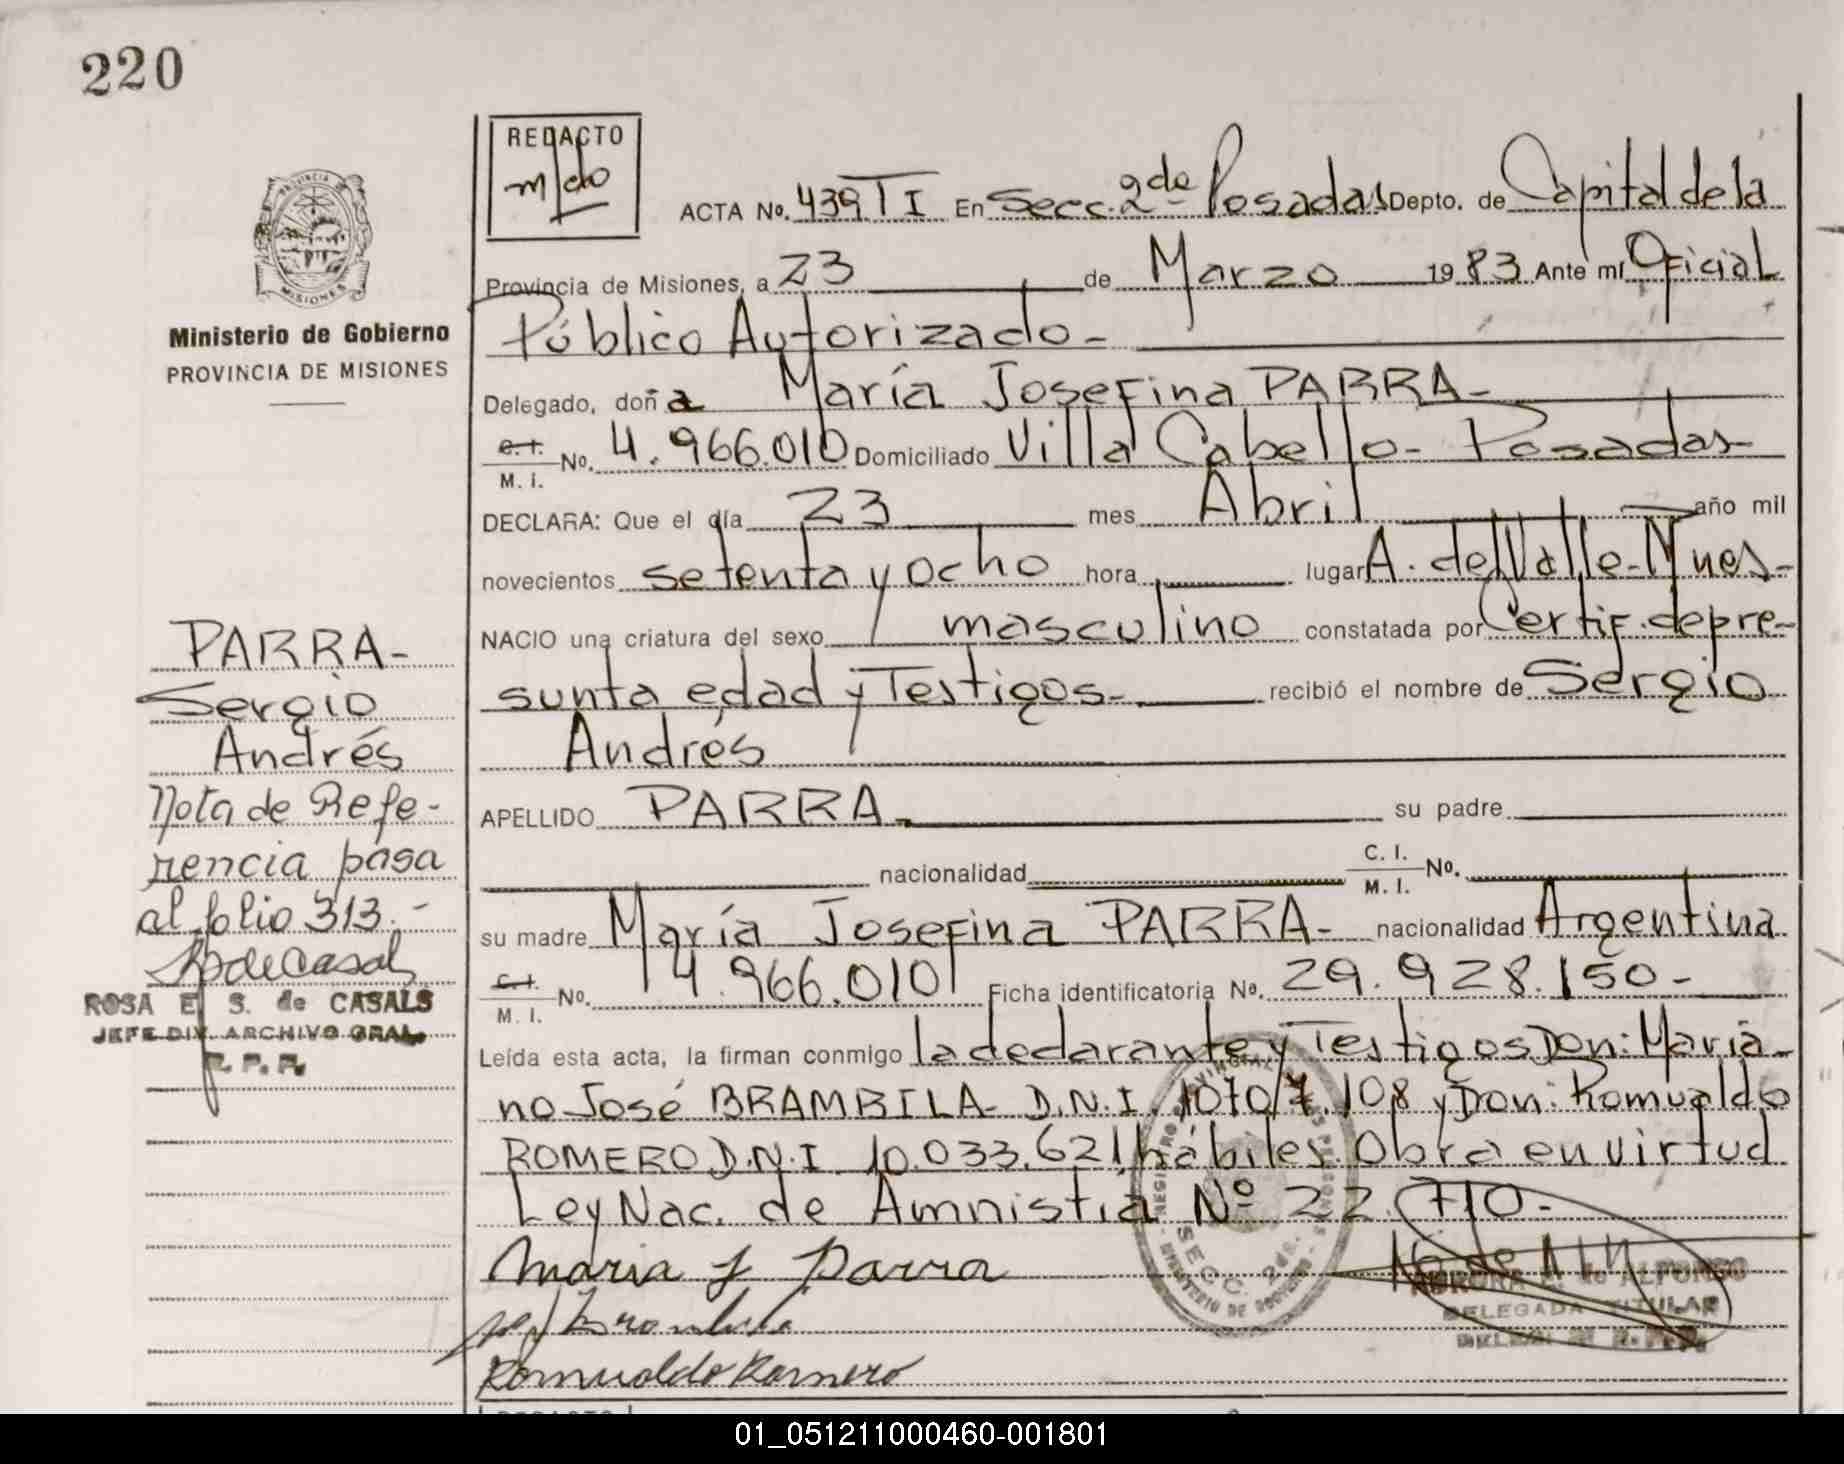 220
REDACTO
m/do
PROVINCIA DE
MISIONES
Ministerio de Gobierno
PROVINCIA DE MISIONES
ACTA No. 439 TI En Secc. 2da Posadas Depto. de Capital de la
Provincia de Misiones, a 23 de Marzo 1983 Ante mí Oficial
Público Autorizado-
Delegado, doña María Josefina PARRA-
C.I. M. I. No. 4.966.010 Domiciliado Villa Cabello- Posadas-
DECLARA: Que el día 23 mes Abril año mil
novecientos setenta y ocho hora lugar A. del Valle-Mnes-
NACIO una criatura del sexo masculino constatada por Certif. de pre-
sunta edad y Testigos- recibió el nombre de Sergio
Andrés
APELLIDO PARRA- su padre
nacionalidad C. I. M. I. No.
su madre María Josefina PARRA- nacionalidad Argentina
C.I. M. I. No. 4.966.010 Ficha identificatoria No. 29.928.150-
Leída esta acta, la firman conmigo la declarante y Testigos Don: Maria-
no José BRAMBILA- D.N.I. 10.707.108 y Don: Romualdo
ROMERO D.N.I. 10.033.621 hábiles. Obra en virtud
Ley Nac. de Amnistía Nº 22.710-
Maria J Parra
Brambila
Romualdo Romero
SECC. 2da.
MINISTERIO DE GOBIERNO
de ALFONSO
DELEGADA TITULAR
PARRA-
Sergio
Andrés
Nota de Refe-
rencia pasa
al folio 313.-
RdeCasals
ROSA E. S. de CASALS
JEFE DIV. ARCHIVO GRAL.
R. P. P.
REDACTO
01_051211000460-001801